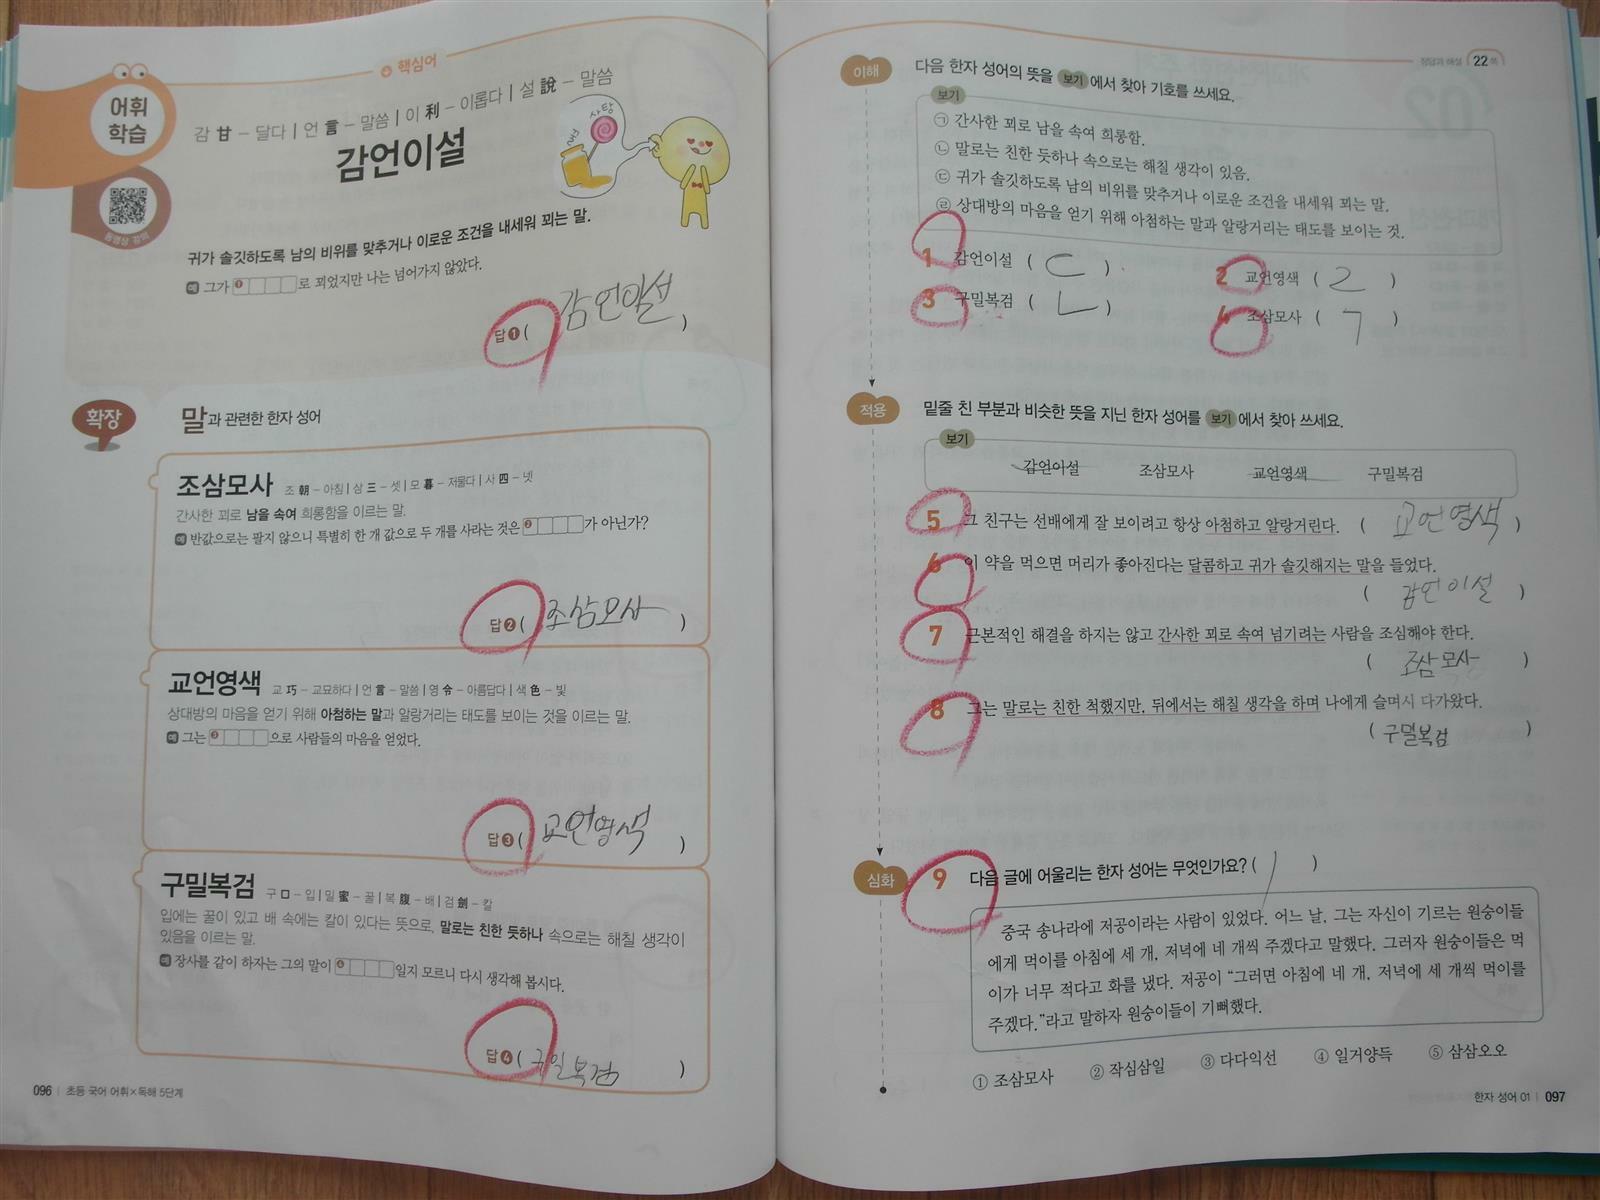 핵심어
어휘
학습
동영상 강의
감 甘 – 달다 | 언 言 – 말씀 | 이 利 – 이롭다 | 설 說 – 말씀
감언이설
사탕
귀가 솔깃하도록 남의 비위를 맞추거나 이로운 조건을 내세워 꾀는 말.
예 그가 ❶로 꾀었지만 나는 넘어가지 않았다.
답❶( 감언이설 )
확장
말과 관련한 한자 성어
조삼모사 조 朝 – 아침 | 삼 三 – 셋 | 모 暮 – 저물다 | 사 四 – 넷
간사한 꾀로 남을 속여 희롱함을 이르는 말.
예 반값으로는 팔지 않으니 특별히 한 개 값으로 두 개를 사라는 것은 ❷가 아닌가?
답❷( 조삼모사 )
교언영색 교 巧 – 교묘하다 | 언 言 – 말씀 | 영 令 – 아름답다 | 색 色 – 빛
상대방의 마음을 얻기 위해 아첨하는 말과 알랑거리는 태도를 보이는 것을 이르는 말.
예 그는 ❸으로 사람들의 마음을 얻었다.
답❸( 교언영색 )
구밀복검 구 口 – 입 | 밀 蜜 – 꿀 | 복 腹 – 배 | 검 劍 – 칼
입에는 꿀이 있고 배 속에는 칼이 있다는 뜻으로, 말로는 친한 듯하나 속으로는 해칠 생각이
있음을 이르는 말.
예 장사를 같이 하자는 그의 말이 ❹일지 모르니 다시 생각해 봅시다.
답❹( 구밀복검 )
096 | 초등 국어 어휘×독해 5단계
정답과 해설 22쪽
이해 다음 한자 성어의 뜻을 보기 에서 찾아 기호를 쓰세요.
보기
㉠ 간사한 꾀로 남을 속여 희롱함.
㉡ 말로는 친한 듯하나 속으로는 해칠 생각이 있음.
㉢ 귀가 솔깃하도록 남의 비위를 맞추거나 이로운 조건을 내세워 꾀는 말.
㉣ 상대방의 마음을 얻기 위해 아첨하는 말과 알랑거리는 태도를 보이는 것.
1 감언이설 ( ㄷ ) 2 교언영색 ( ㄹ )
3 구밀복검 ( ㄴ ) 4 조삼모사 ( ㄱ )
적용 밑줄 친 부분과 비슷한 뜻을 지닌 한자 성어를 보기 에서 찾아 쓰세요.
보기
감언이설 조삼모사 교언영색 구밀복검
5 그 친구는 선배에게 잘 보이려고 항상 아첨하고 알랑거린다. ( 교언영색 )
6 이 약을 먹으면 머리가 좋아진다는 달콤하고 귀가 솔깃해지는 말을 들었다.
( 감언이설 )
7 근본적인 해결을 하지는 않고 간사한 꾀로 속여 넘기려는 사람을 조심해야 한다.
( 조삼모사 )
8 그는 말로는 친한 척했지만, 뒤에서는 해칠 생각을 하며 나에게 슬며시 다가왔다.
( 구밀복검 )
심화 9 다음 글에 어울리는 한자 성어는 무엇인가요? ( 1 )
중국 송나라에 저공이라는 사람이 있었다. 어느 날, 그는 자신이 기르는 원숭이들
에게 먹이를 아침에 세 개, 저녁에 네 개씩 주겠다고 말했다. 그러자 원숭이들은 먹
이가 너무 적다고 화를 냈다. 저공이 “그러면 아침에 네 개, 저녁에 세 개씩 먹이를
주겠다.”라고 말하자 원숭이들이 기뻐했다.
① 조삼모사 ② 작심삼일 ③ 다다익선 ④ 일거양득 ⑤ 삼삼오오
한자 성어 01 | 097